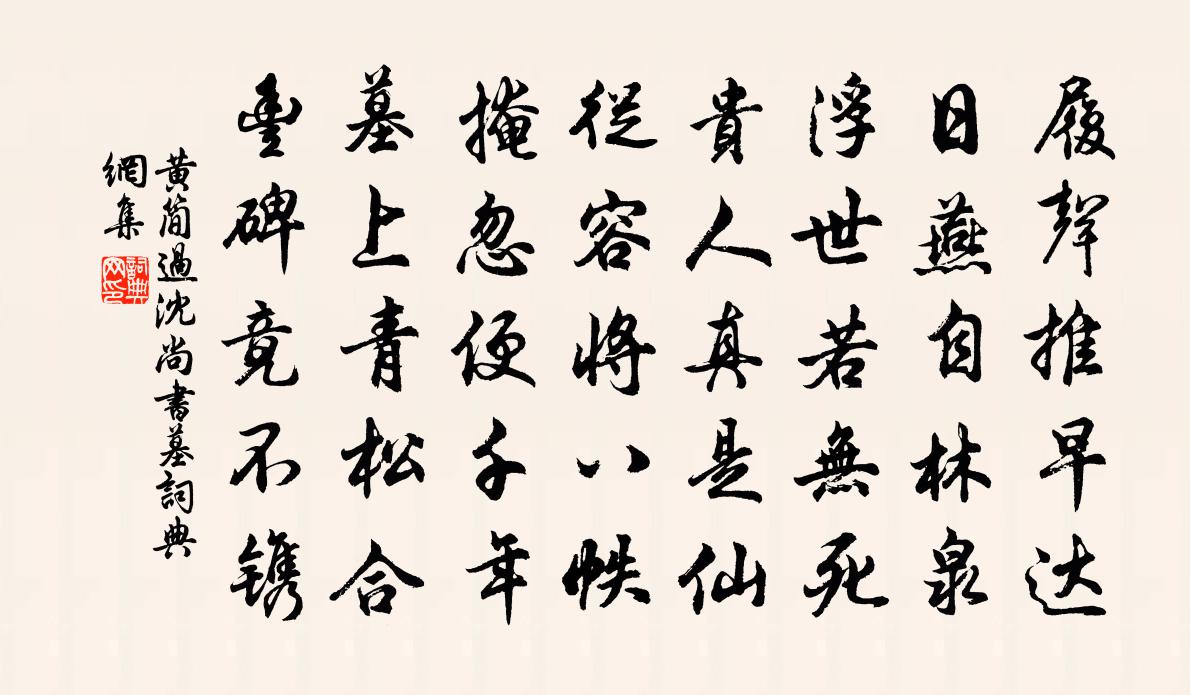 履聲推早达
日燕自林泉
浮世若無死
貴人真是仙
從容將八帙
掩忽便千年
墓上青松合
豐碑竟不镌
黄简過沈尚書墓詞典
網集
詞典
网印